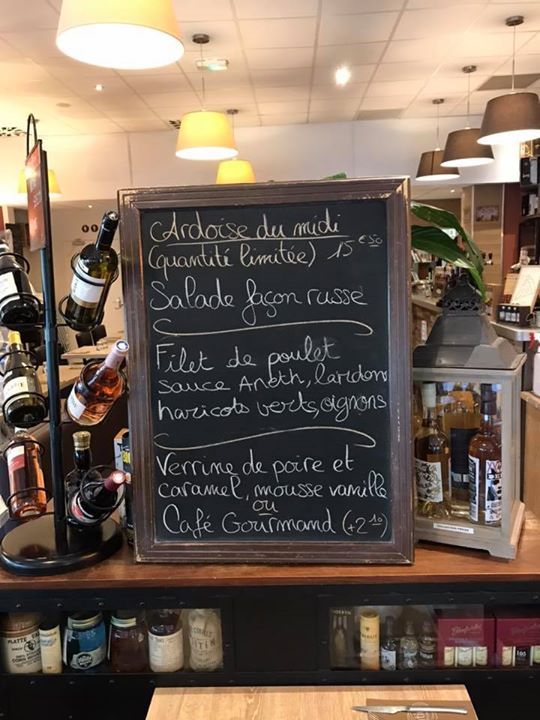 Ardoise du midi
(quantité limitée) 15 €50
Salade façon russe
Filet de poulet
sauce Aneth, lardons
haricots verts, oignons
Verrine de poire et
caramel, mousse vanille
ou
Café Gourmand (+2 10)